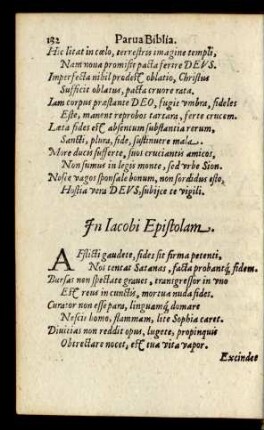 152 Parua Biblia.
Hic litat in cælo, terrestris imagine templi,
Nam noua promissæ pacta ferre DEVS.
Imperfecta nihil prodest oblatio, Christus
Sufficit oblatus, pacta cruore rata.
Iam corpus præstante DEO, fugit vmbra, fideles
Este, manent reprobos tartara, ferte crucem.
Læta fides est absentum substantia rerum,
Sancti, plura, fide, sustinuere mala.
More ducis sufferte, suos cruciantis amicos,
Non sumus in legis monte, sed vrbe Sion.
Nosce vagos sponsale bonum, non sordidus esto,
Hostia vera DEVS, subijce te vigili.
In Iacobi Epistolam.
AFflicti gaudete, fides sit firma petenti,
Nos tentat Satanas, facta probantq́; fidem.
Bursas non spectate graues, transgressor in vno
Est reus in cunctis, mortua nuda fides.
Curator non esse para, linguamq́; domare
Nescis homo, flammam, lite Sophia caret.
Diuitias non reddit opus, lugete, propinquis
Obtrectare nocet, est tua vita vapor.
Excindet